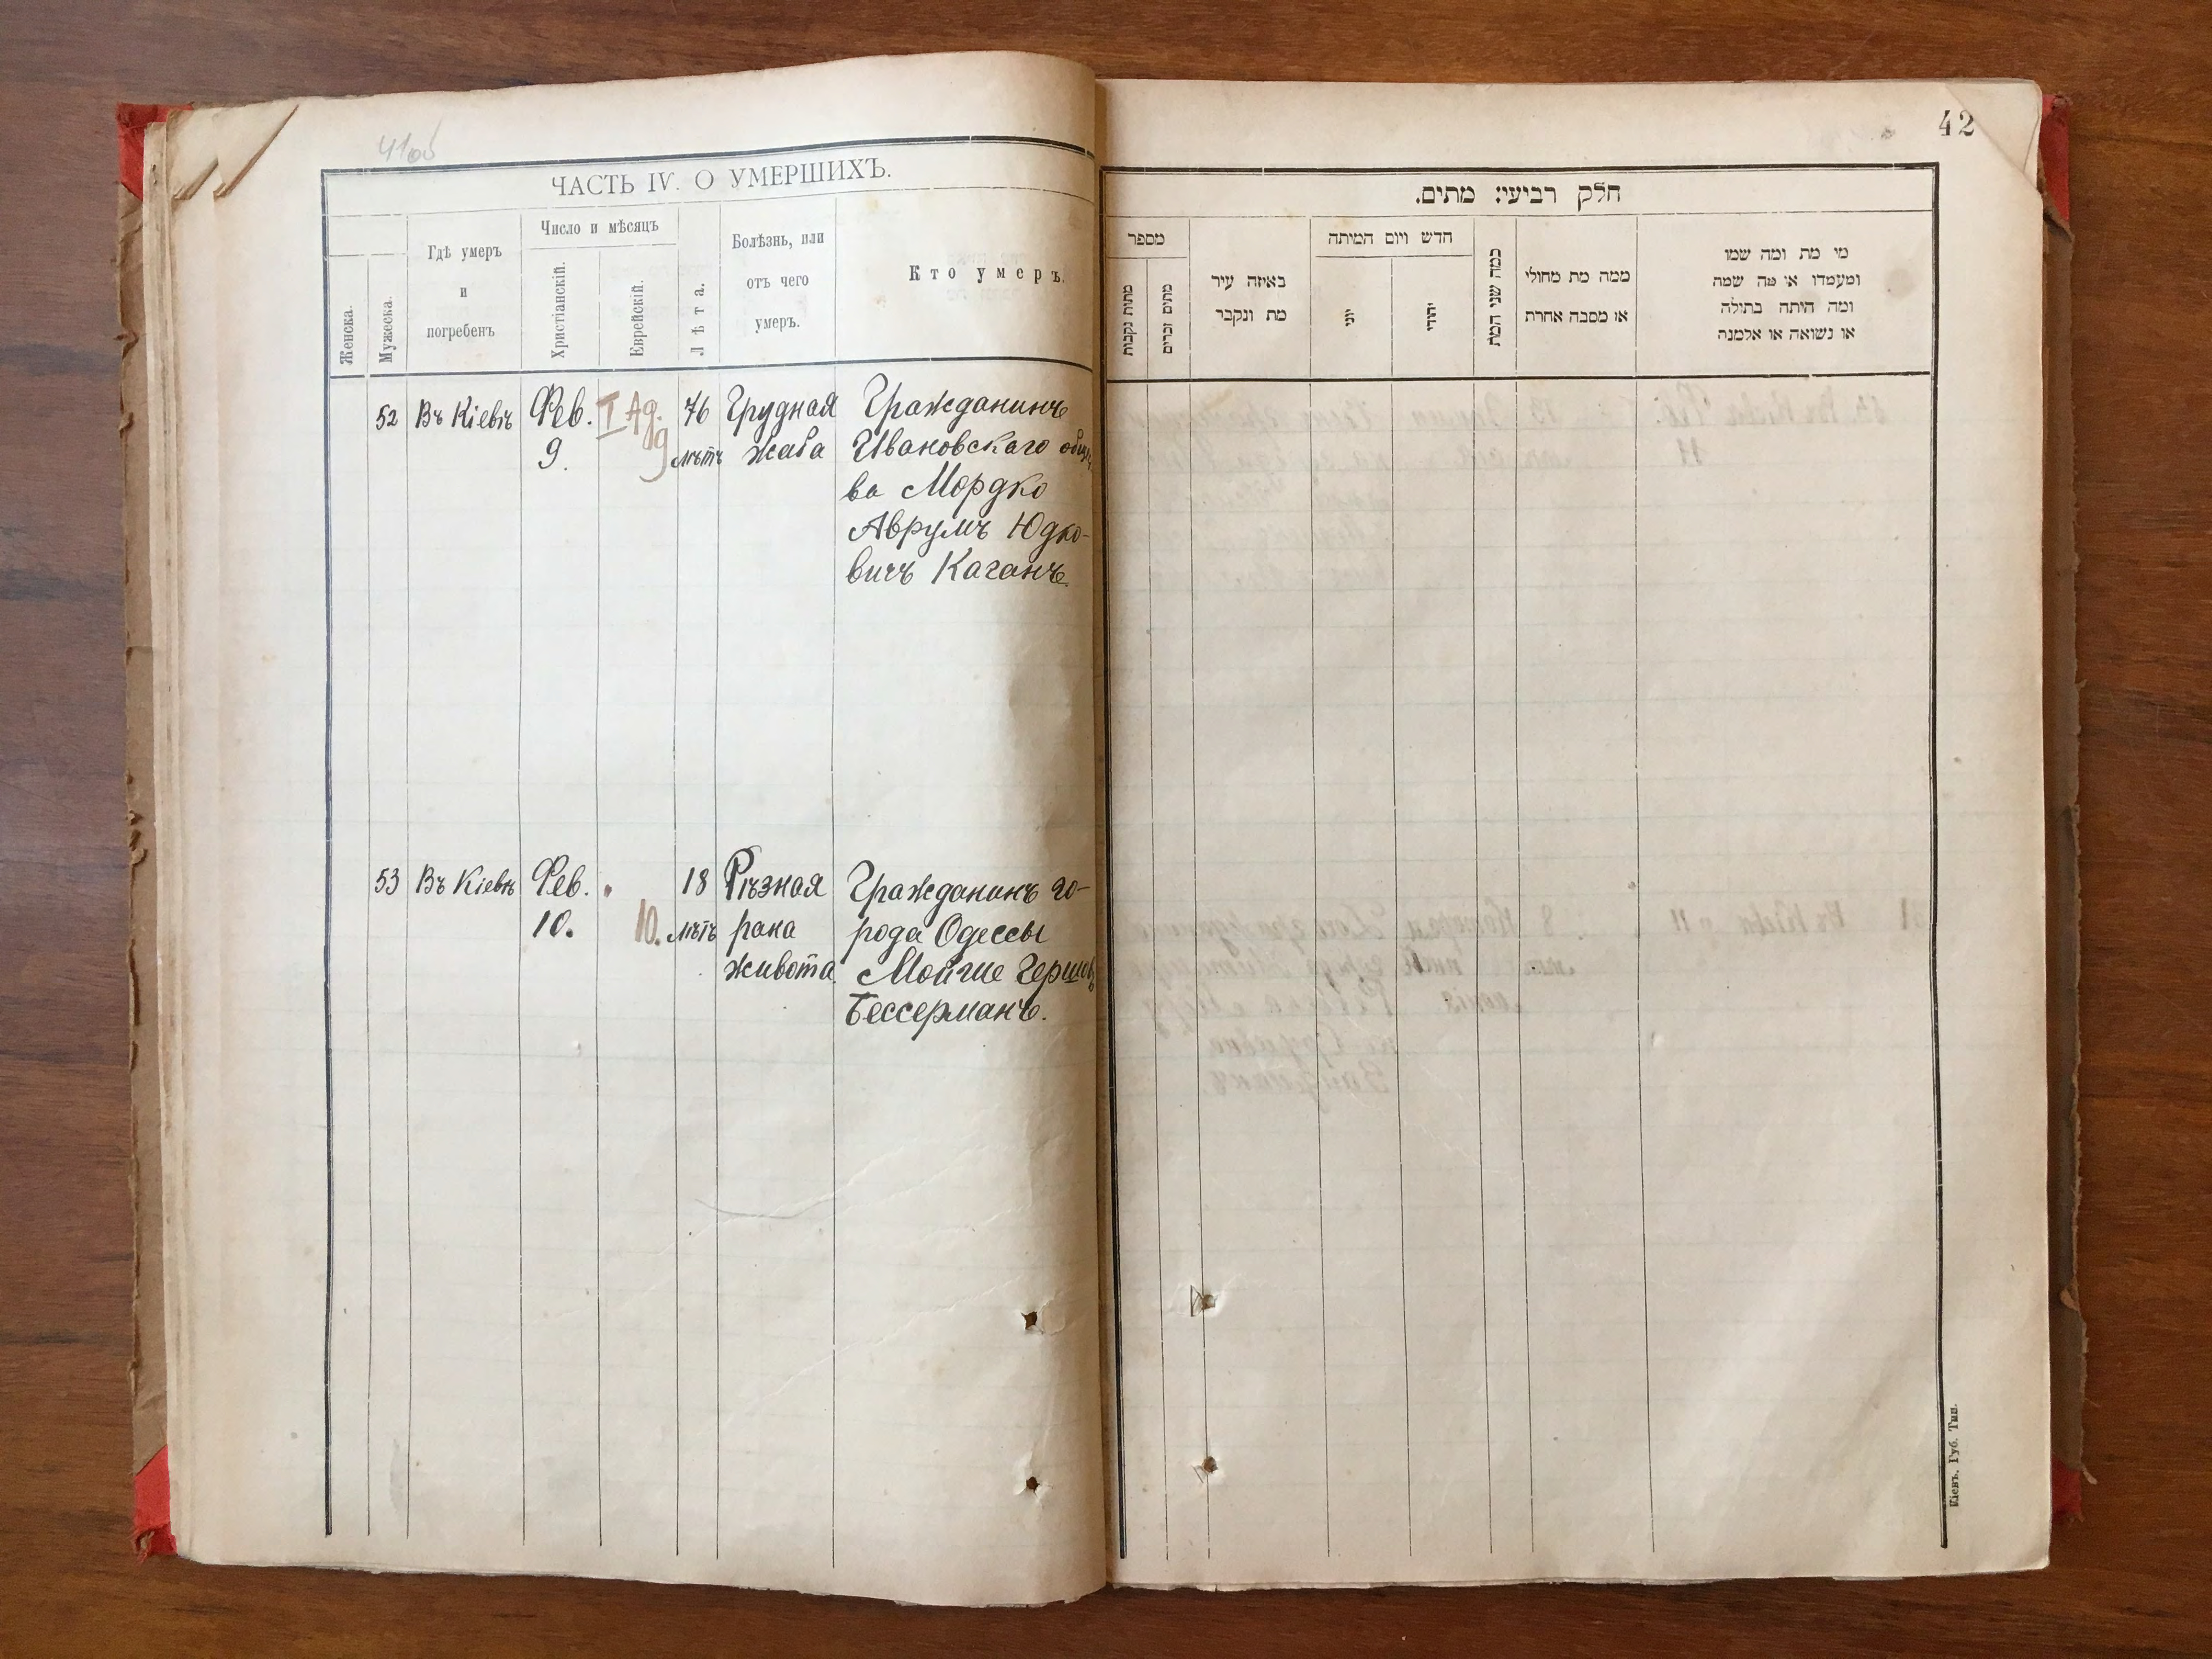 41об
ЧАСТЬ IV. О УМЕРШИХЪ.
Женска.
Мужеска.
Гдѣ умеръ
и
погребенъ
Число и мѣсяцъ
Христіанскій.
Еврейскій.
Лѣта.
Болѣзнь, или
отъ чего
умеръ.
Кто умеръ.
52
Въ Кіевѣ
Фев.
9.
I Ад.
9
76
лѣтъ
Грудная
жаба
Гражданинъ
Ивановскаго общ
ва Мордко
Аврумъ Юдко-
вичъ Каганъ.
53
Въ Кіевѣ
Фев.
10.
10.
18
лѣтъ
Рѣзная
рана
живота.
Гражданинъ го-
рода Одессы
Мойше Гершов
Бессерманъ.
42
חלק רביעי: מתים.
מספר
מתות נקבות
מתים זכרים
באיזה עיר
מת ונקבר
חדש ויום המיתה
יוני
יהודי
כמה שני המת
ממה מת מחולי
או מסבה אחרת
מי מת ומה שמו
ומעמדו או מה שמה
ומה היתה בתולה
או נשואה או אלמנה
Кіевъ. Губ. Тип.